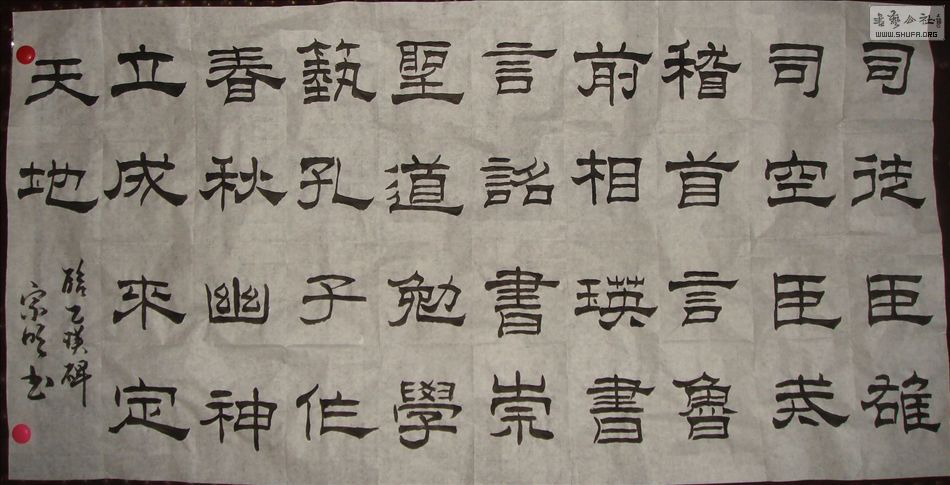 司徒臣雄
司空臣戒
稽首言魯
前相瑛書
言詔書崇
聖道勉學
藝孔子作
春秋幽神
立成來定
天地
臨乙瑛碑
宗明书
書藝公社
WWW.SHUFR.ORG